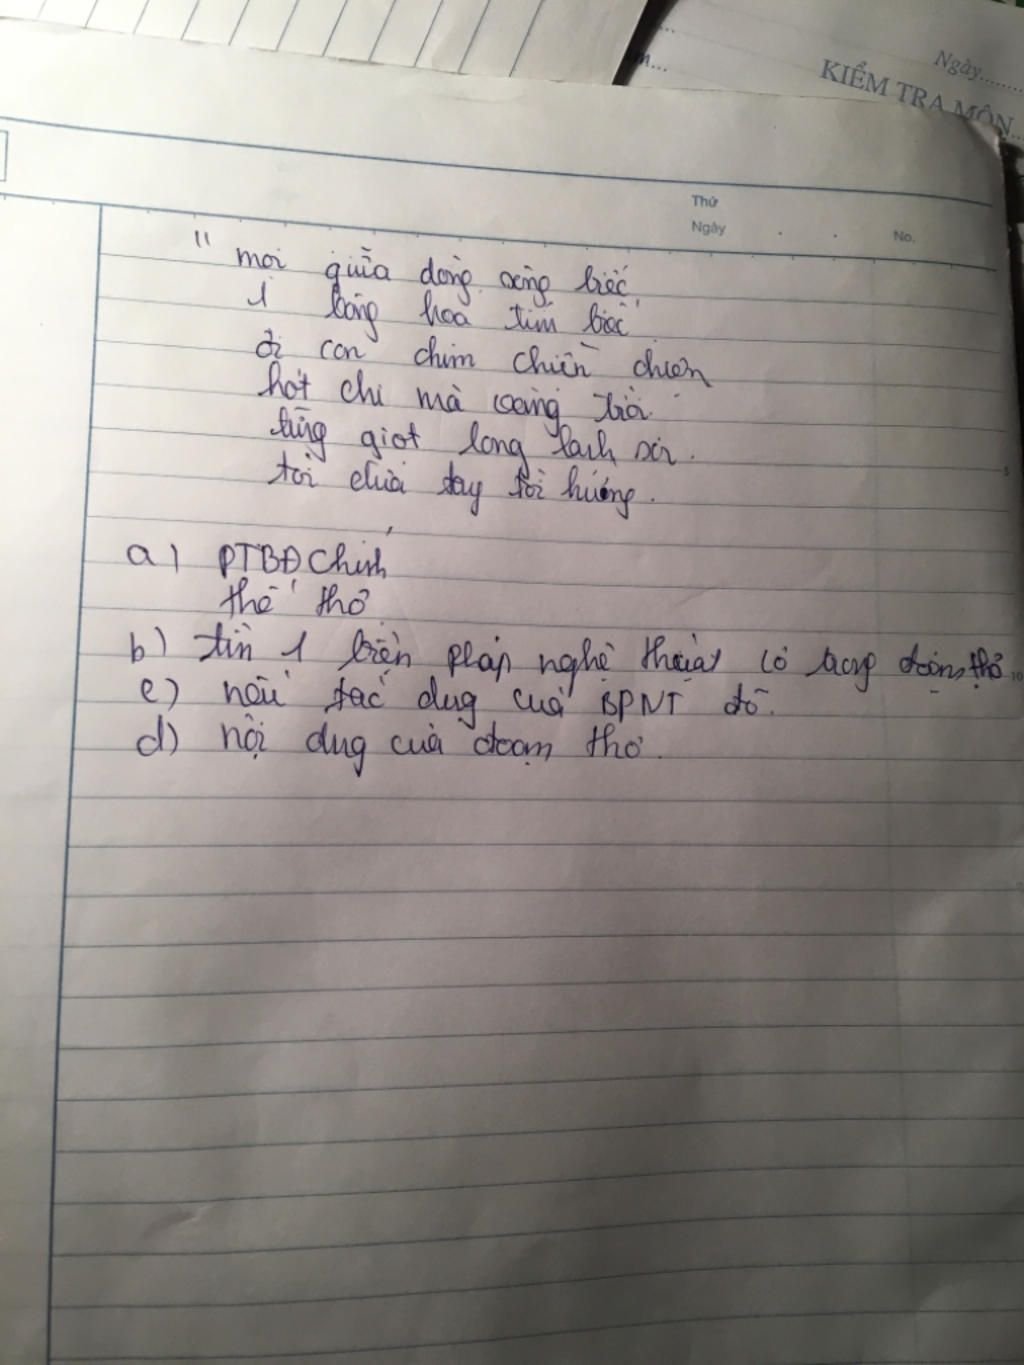 Ngày........
m...
KIỂM TRA MÔN...
Thứ
Ngày . . No.
" mọi giữa dòng sông biếc
1 bông hoa tím biếc
ơi con chim chiền chiện
hót chi mà vang trời
từng giọt long lanh rơi.
tôi đưa tay tôi hứng.
a) PTBĐ Chính
thể thơ
b) tìn 1 biện pháp nghệ thuật có trong đoạn thơ
c) nêu tác dụg của BPNT đó.
d) nội dug của đoạn thơ.
5
10